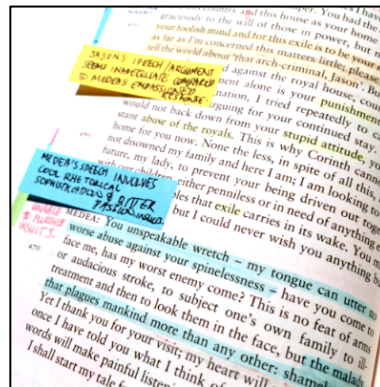 country and this house as your home
graciously to the will of those in power, but
your foolish mind and for this exile to be your
as far as I'm concerned this matters little; please
tell the world about 'that arch-criminal, Jason'. Bu
against the royal house, coun
ment alone is your punishment
nation, I tried repeatedly to c
arguing for your continued stay.
would not back down from your stupid attitude, yo
stant abuse of the royals. This is why Corinth canno
home for you now. None the less, in spite of all this,
not disowned my family and here I am; I am looking to
future, my lady, to prevent your being driven out toge
children either penniless or in need of anything
bles that exile carries in its wake. You m
but I could never wish you anything b
JASON'S SPEECH/ARGUMENT
SEEMS
TO MEDEA'S IMPASSIONED
RESPONSE.
MEDEA'S SPEECH INVOLVES
COOL RHETORICAL
SOPHISTICATION & BITTER
INSULTS.
470
MEDEA: You unspeakable wretch – my tongue can utter no
worse abuse against your spinelessness – have you come to
face me, has my worst enemy come? This is no feat of arms
or audacious stroke, to subject one's own family to ill-
treatment and then to look them in the face, but the malady
that plagues mankind more than any other: shame
Yet I thank you for your visit; my heart
once I have told you what I think of
words will make painful listen
I shall start my tale f